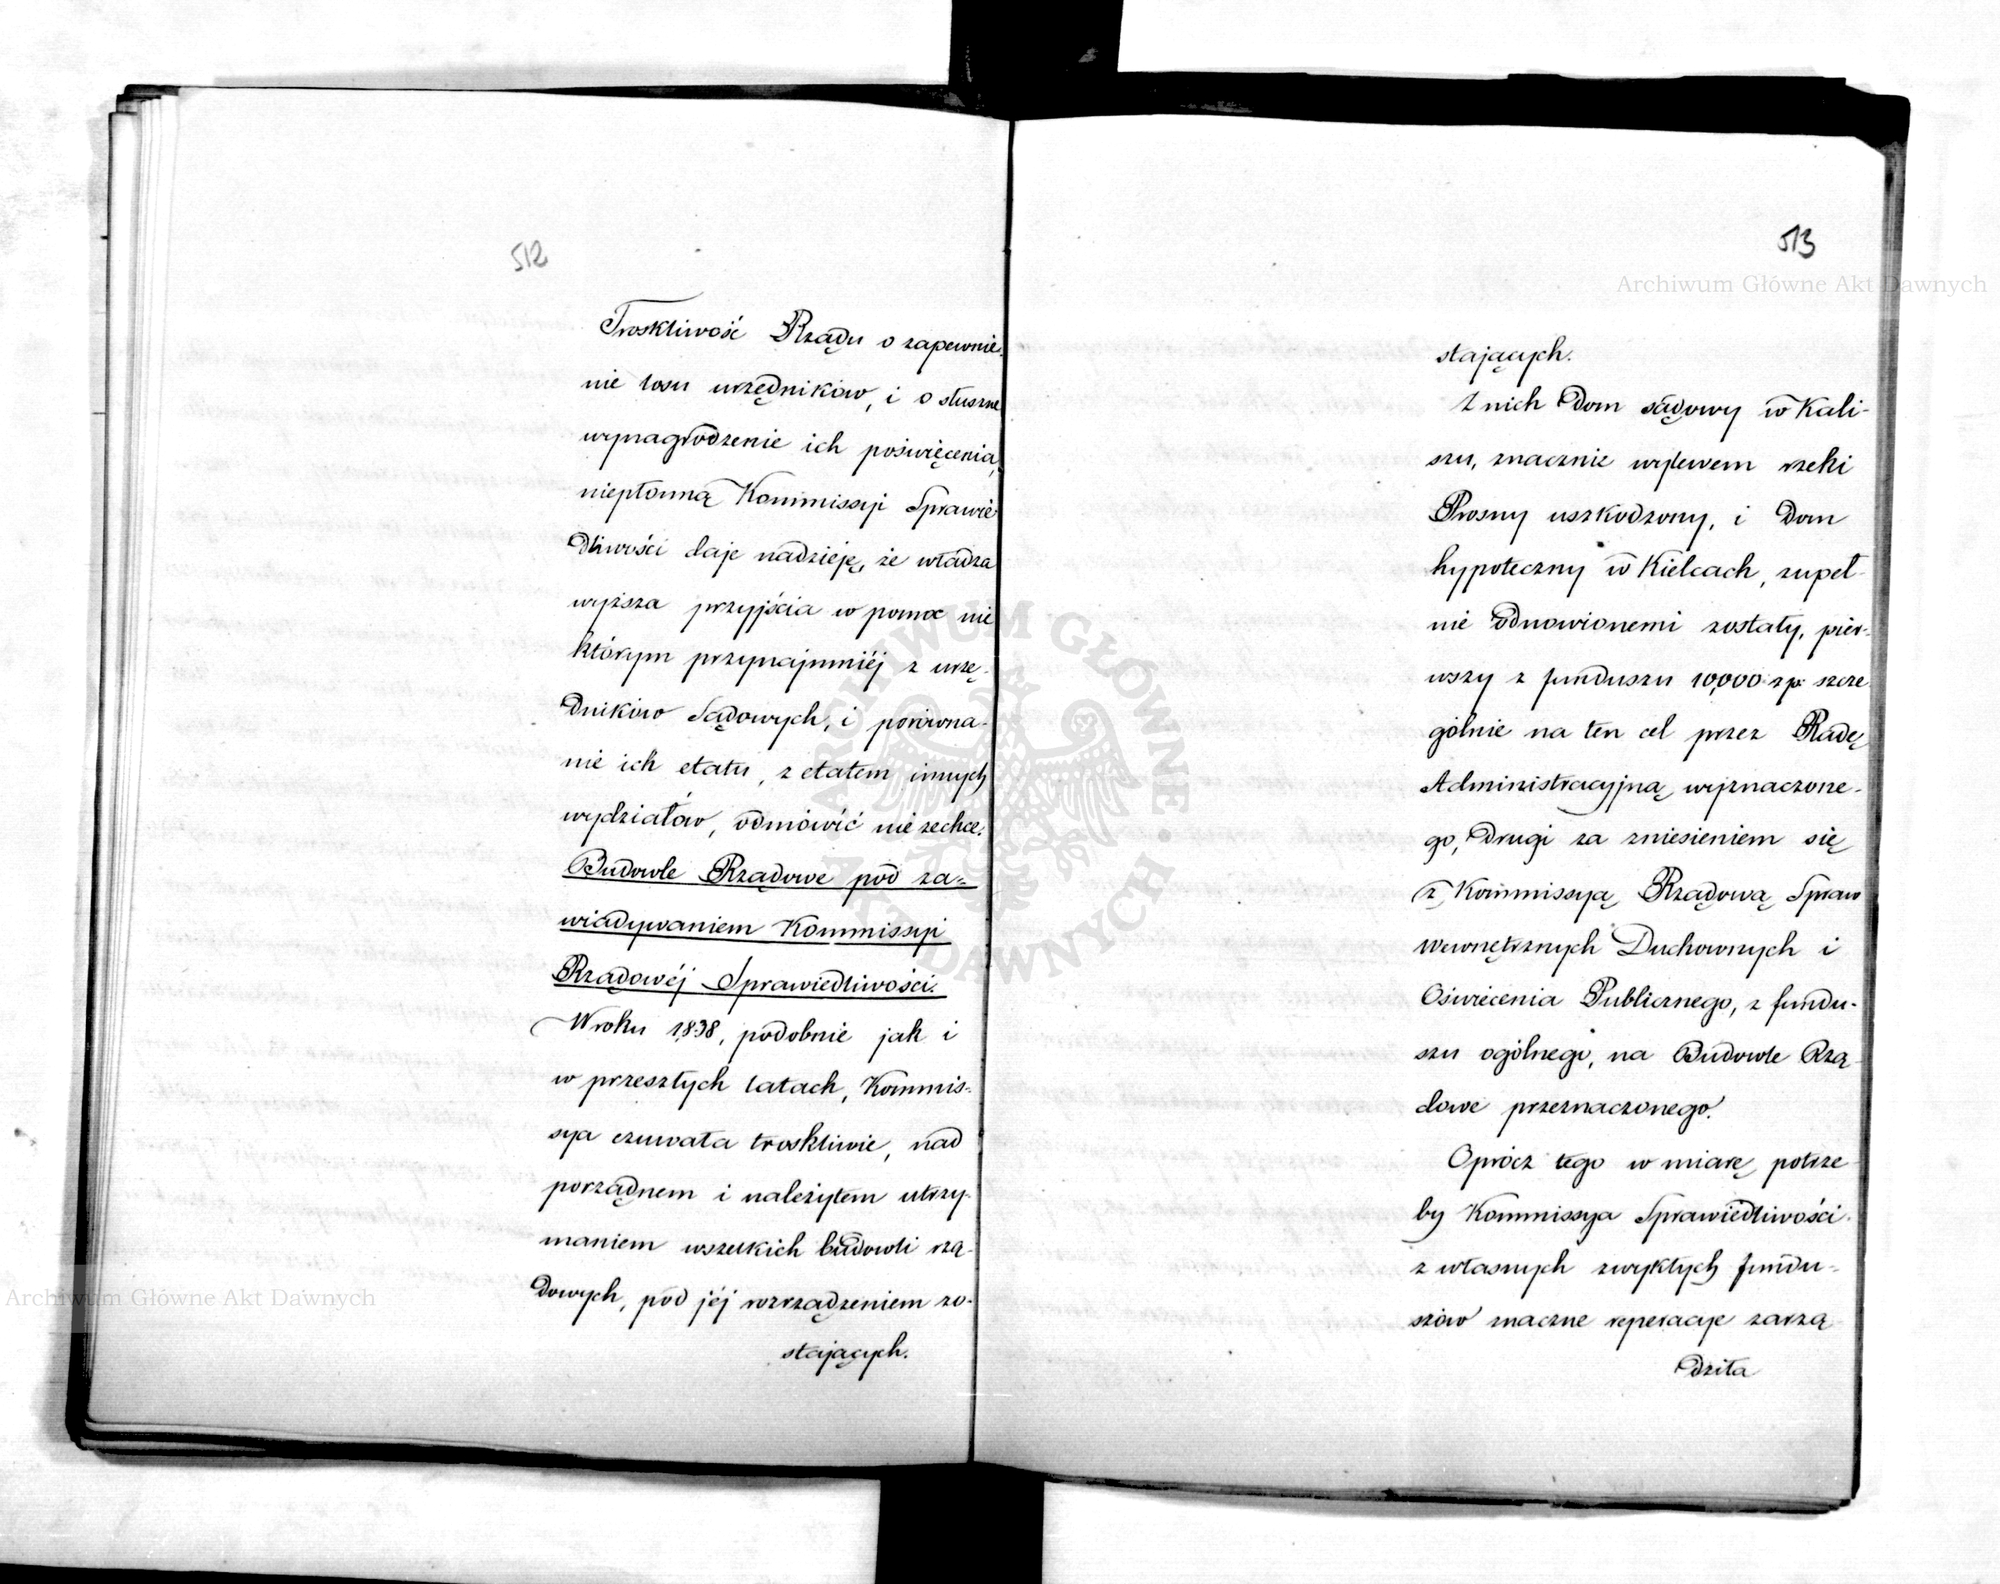 512
Troskliwość Rządu o zapewnie-
nie losu urzędników, i o słuszne
wynagrodzenie ich poświęcenia,
niepłonną Kommissyi Sprawie
dliwości daje nadzieję, że władza
wyższa przyjścia w pomoc nie
którym przynajmniéj z urzę-
dników Sądowych, i porówna-
nie ich etatu, z etatem innych
wydziałów, odmówić nie zechce.
Budowle Rządowe pod za-
wiadywaniem Kommissyi
Rządowéj Sprawiedliwości.
W roku 1838, podobnie jak i
w przeszłych latach, Kommis-
sya czuwała troskliwie, nad
porządnem i należytem utrzy-
maniem wszelkich budowli rzą-
dowych, pod jéj rozrządzeniem zo-
stających.
513
stających.
Z nich Dom sądowy w Kali-
szu, znacznie wylewem rzeki
Prosny uszkodzony, i Dom
hypoteczny w Kielcach, zupeł-
nie odnowionemi zostały, pier-
wszy z funduszu 10,000 zp. szcze
gólnie na ten cel przez Radę
Administracyjną wyznaczone-
go, drugi za zniesieniem się
z Kommissyą Rządową Spraw
Wewnętrznych Duchownych i
Oświecenia Publicznego, z fundu-
szu ogólnego, na Budowle Rzą
dowe przeznaczonego.
Oprócz tego w miarę potrze-
by Kommissya Sprawiedliwości
z własnych zwykłych fundu-
szów znaczne reperacje zarzą
dziła
Archiwum Główne Akt Dawnych
Archiwum Główne Akt Dawnych
ARCHIWUM GŁÓWNE AKT DAWNYCH